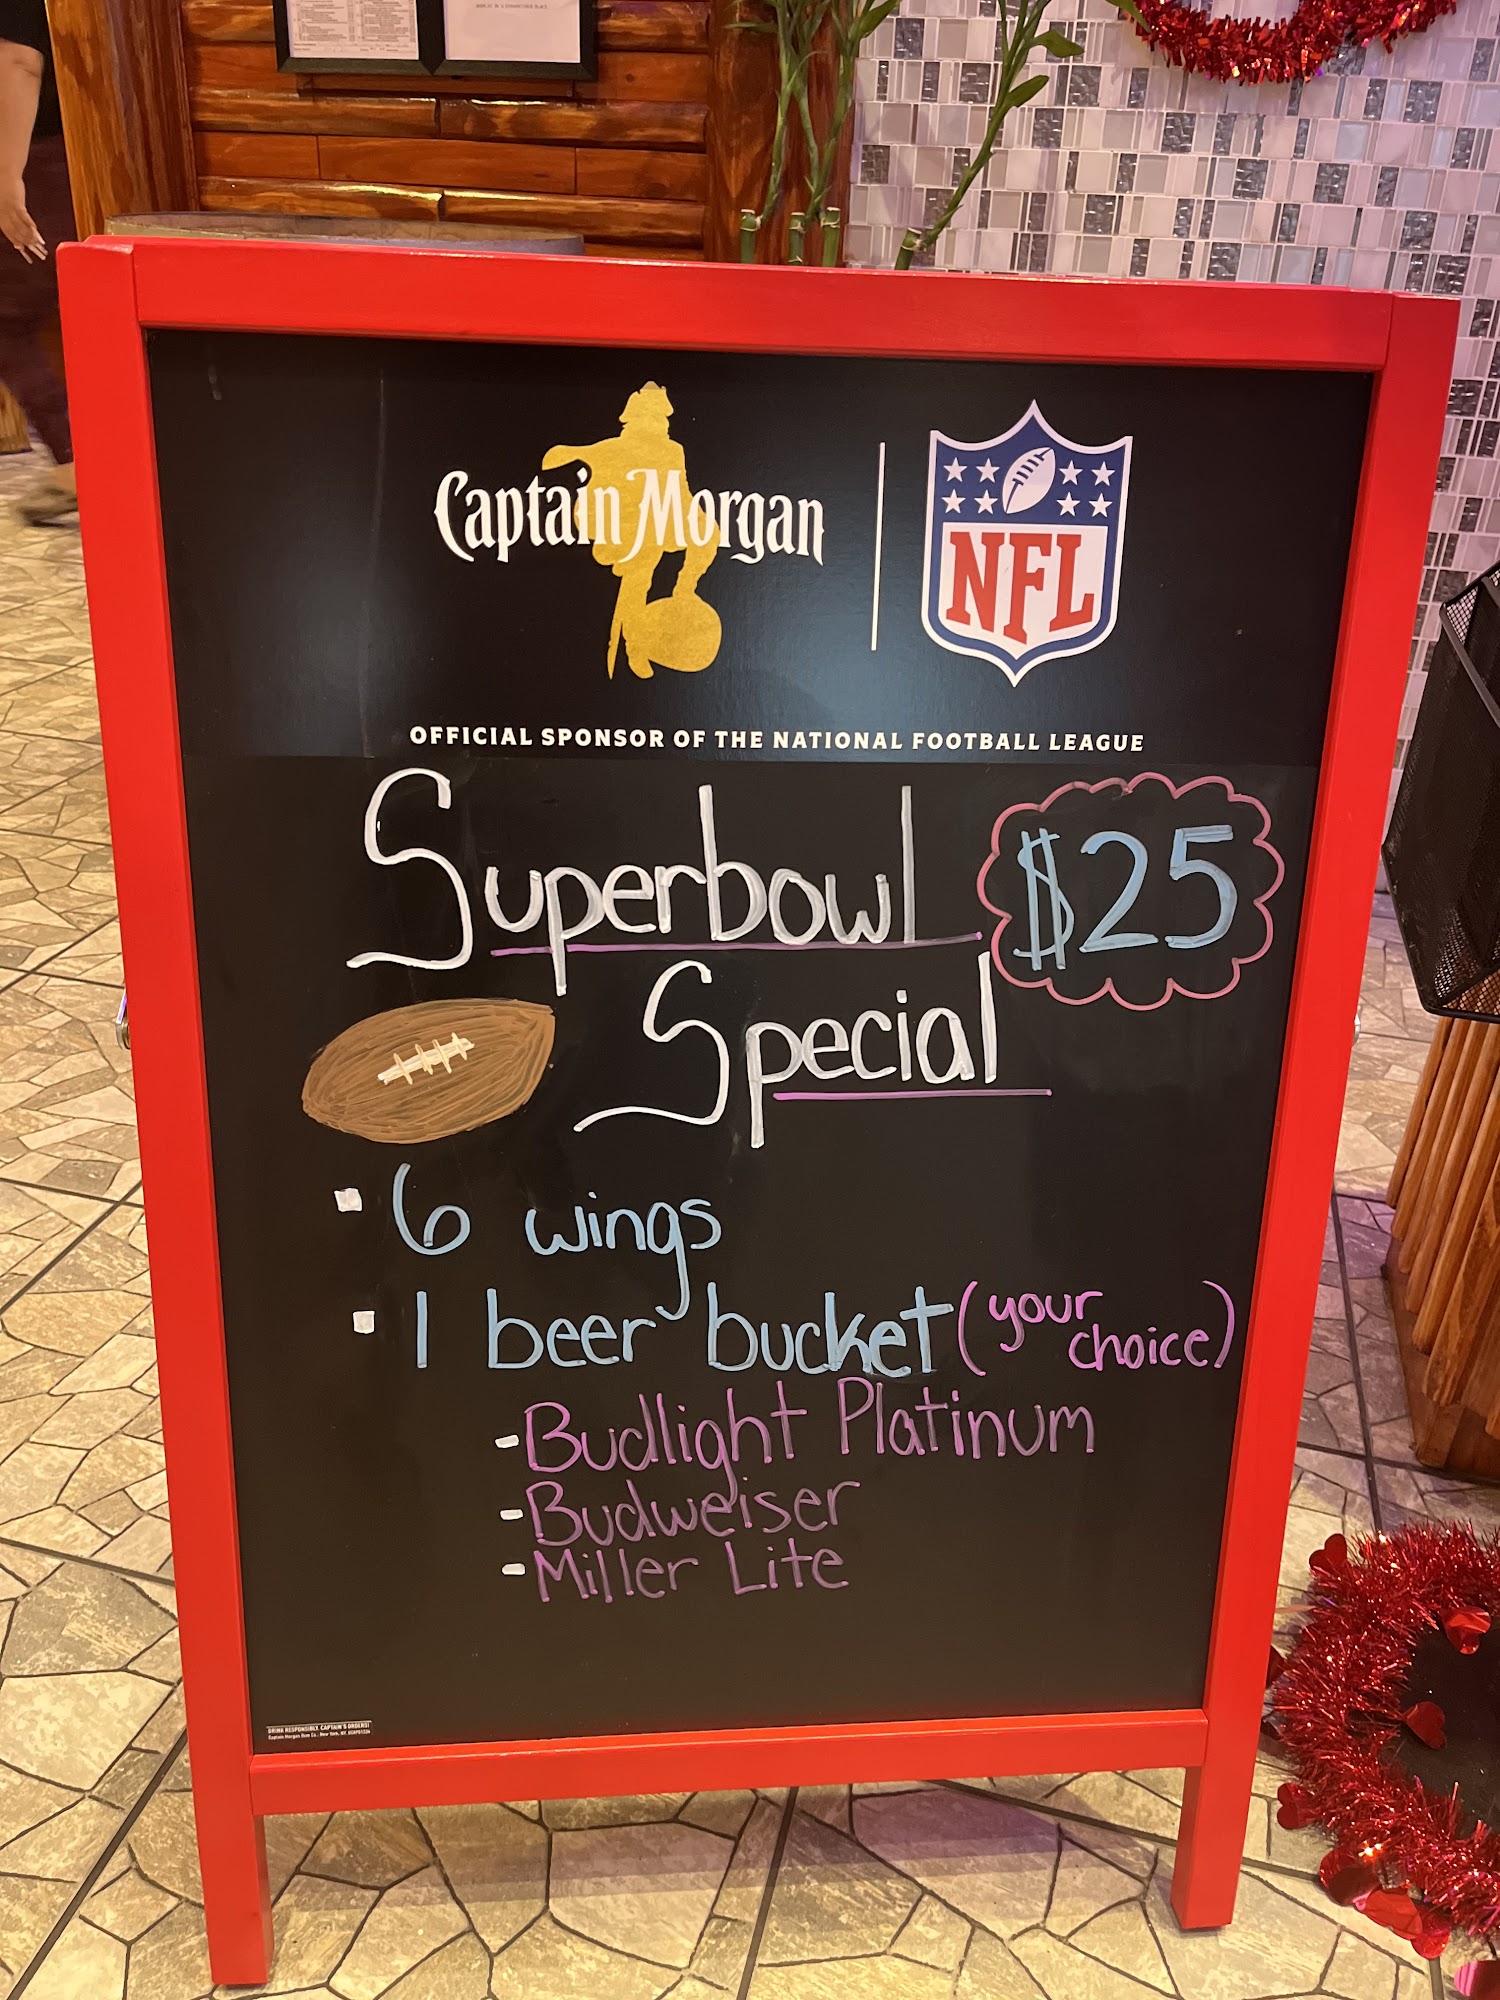 Captain Morgan
NFL
OFFICIAL SPONSOR OF THE NATIONAL FOOTBALL LEAGUE
Superbowl $25
Special
6 wings
1 beer bucket (your choice)
-Budlight Platinum
-Budweiser
-Miller Lite
DRINK RESPONSIBLY. CAPTAIN'S ORDERS!
Captain Morgan Rum Co., New York, NY.